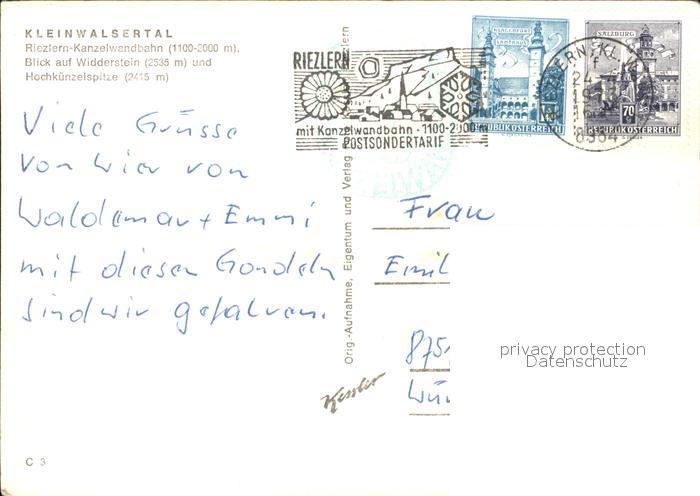 KLEINWALSERTAL
Riezlern-Kanzelwandbahn (1100-2000 m),
Blick auf Widderstein (2535 m) und
Hochkünzelspitze (2415 m)
RIEZLERN
mit Kanzelwandbahn · 1100-2000 m
POSTSONDERTARIF
KLAGENFURT
LANDHAUS
REPUBLIK ÖSTERREICH
SALZBURG
70
REPUBLIK ÖSTERREICH
Viele Grüsse
von hier von
Waldemar + Emmi
mit diesen Gondeln
sind wir gefahren.
Orig.-Aufnahme, Eigentum und Verlag
Frau
Emil
875
Wü
Kessler
privacy protection
Datenschutz
C 3